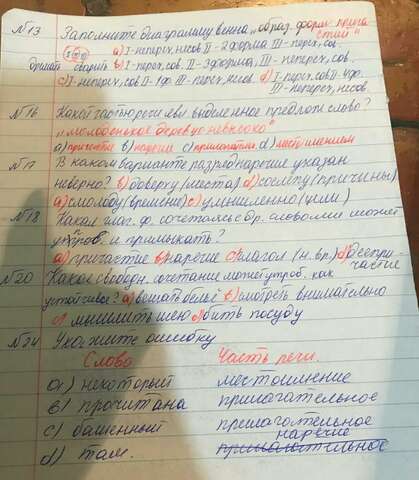 №13 Заполните диаграмму венна „образ. форм причастий"
I II III а) I-неперех, несов. II-2 форма III-перех, сов.
дышать сварить в) I-перех, сов. II-3 форма, III-неперех, сов.
с) I-неперех, сов II-1ф. III-перех, несов. d) I-перех, сов II-4ф. III-неперех, несов.
№16 Какой частью речи явл выделенное предлож слово?
"молоденькое деревцо невысоко"
а) причастие в) наречие с) прилагательн d) местоимением
№17 В каком варианте разряд наречие указан
неверно? в) доверху (места) d) сослепу (причины)
а) смолоду (время) с) умышленно (цели)
№18 Какая глаг. ф. сочетаясь с др. словами может
упров. и примыкать?
а) причастие в) наречие с) глагол (н.вр.) d) деепричастие
№20 Какое свободн. сочетание может упроб. как
устойчивое? а) вешать белье в) смотреть внимательно
с) мылить шею d) бить посуду
№24 Укажите ошибку
Слово Часть речи.
а) некоторый местоимение
в) прочитана прилагательное
с) башенный прилагательное
d) там. наречие